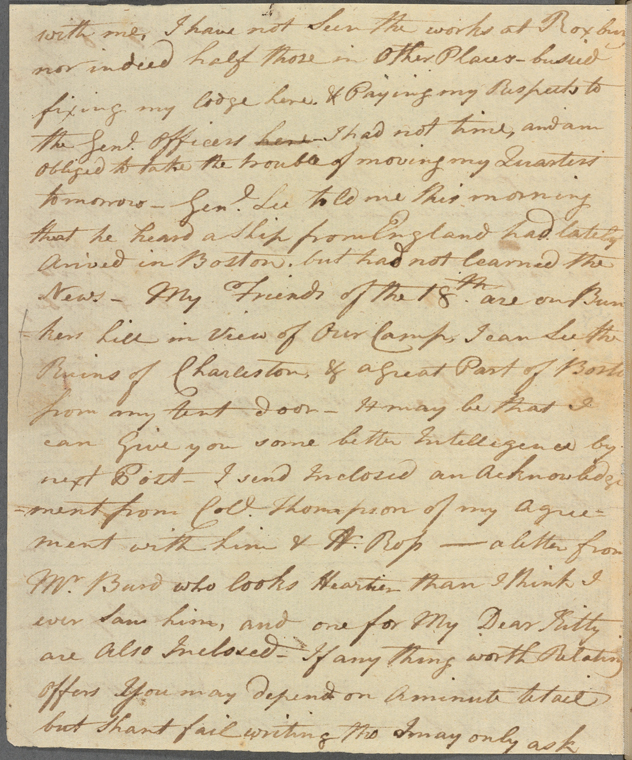 with me, I have not Seen the works at Roxbury
nor indeed half those in Other Places - busied
fixing my lodge here. & Paying my Respects to
the Genl. Officers here I had not time, and am
Obliged to take the trouble of moving my Quarters
tomorrow - Genl. Lee told me this morning
that he heard a Ship from England had lately
Arived in Boston. but had not learned the
News - My Friends of the 18th. are on Bun
kers hill in View of Our Camp, I can See the
Ruins of Charleston, & a great Part of Bosto
from my tent door - It may be that I
can Give you some better Intelligence by
next Post - I send Inclosed an Acknowledge
=ment from Col. Thompson of my Agree=
ment with him & H. Ross — a letter from
Mr. Burd who looks Heartier than I think I
ever Saw him, and one for My Dear Kitty
are Also Inclosed - If any thing worth Relating
Offers You may depend on a minute detail
but shant fail writing tho I may only ask